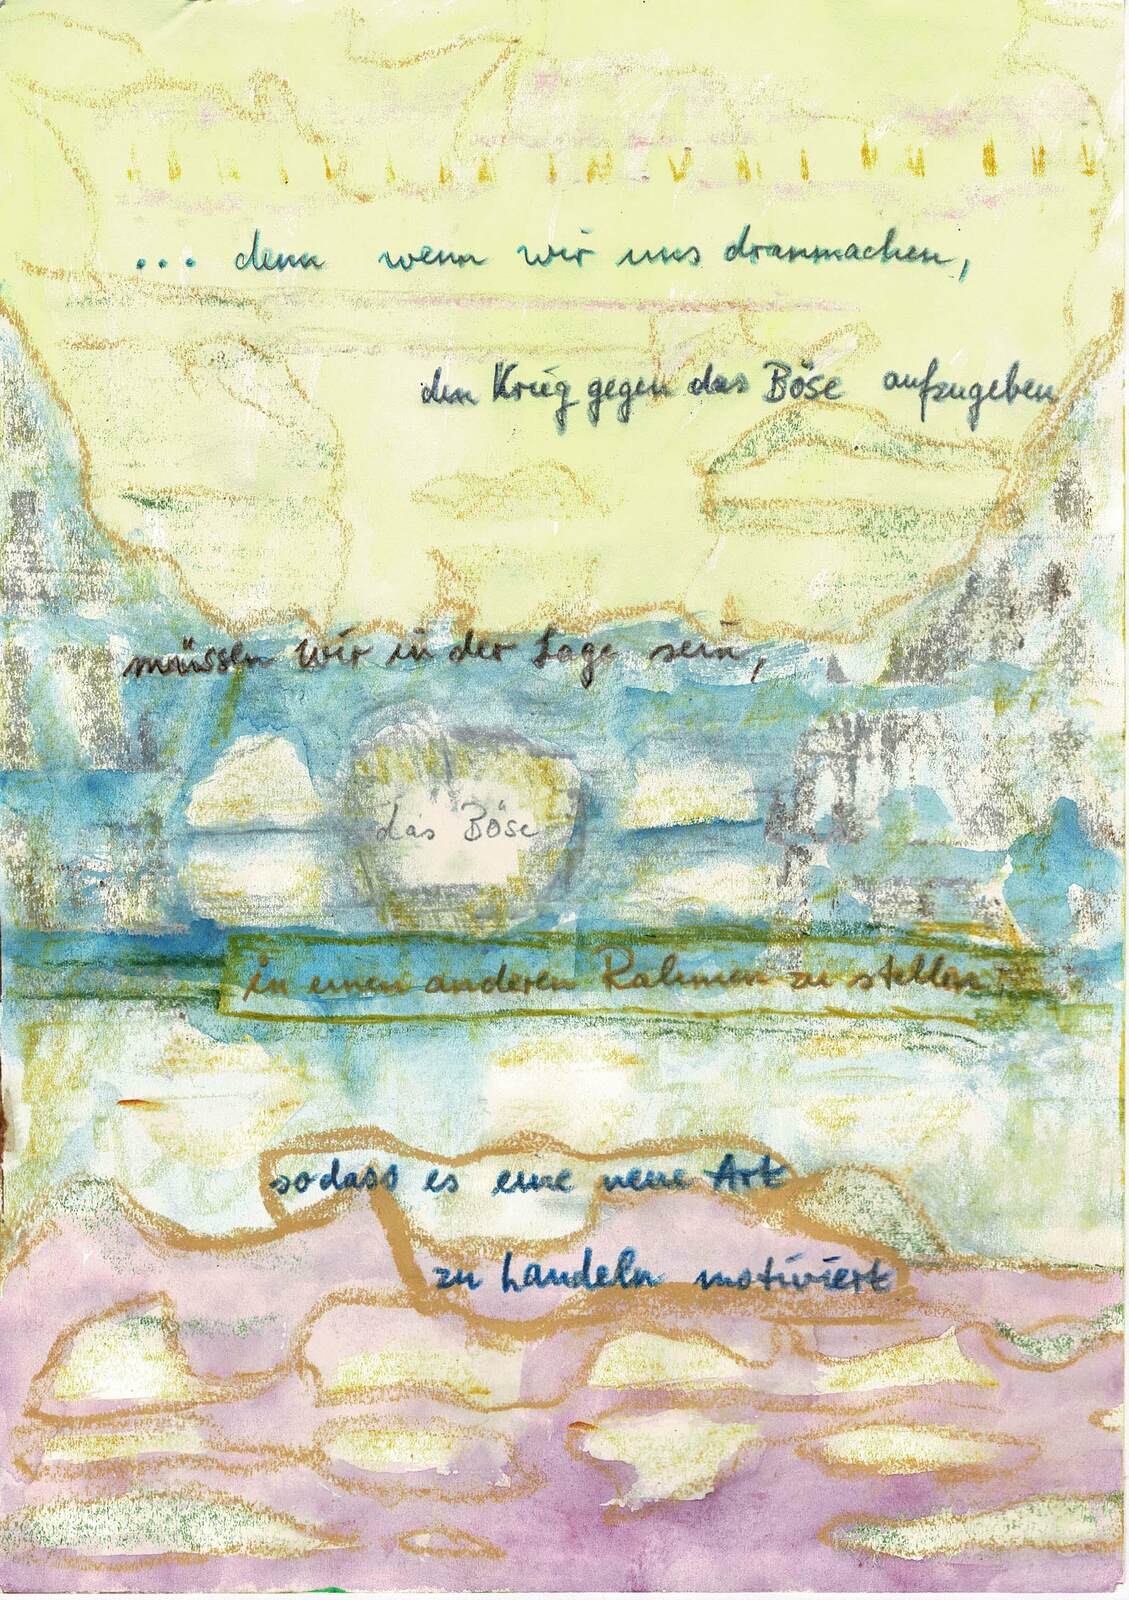 ... denn wenn wir uns dranmachen,
den Krieg gegen das Böse aufzugeben
müssen wir in der Lage sein,
das Böse
in einen anderen Rahmen zu stellen,
sodass es eine neue Art
zu handeln motiviert